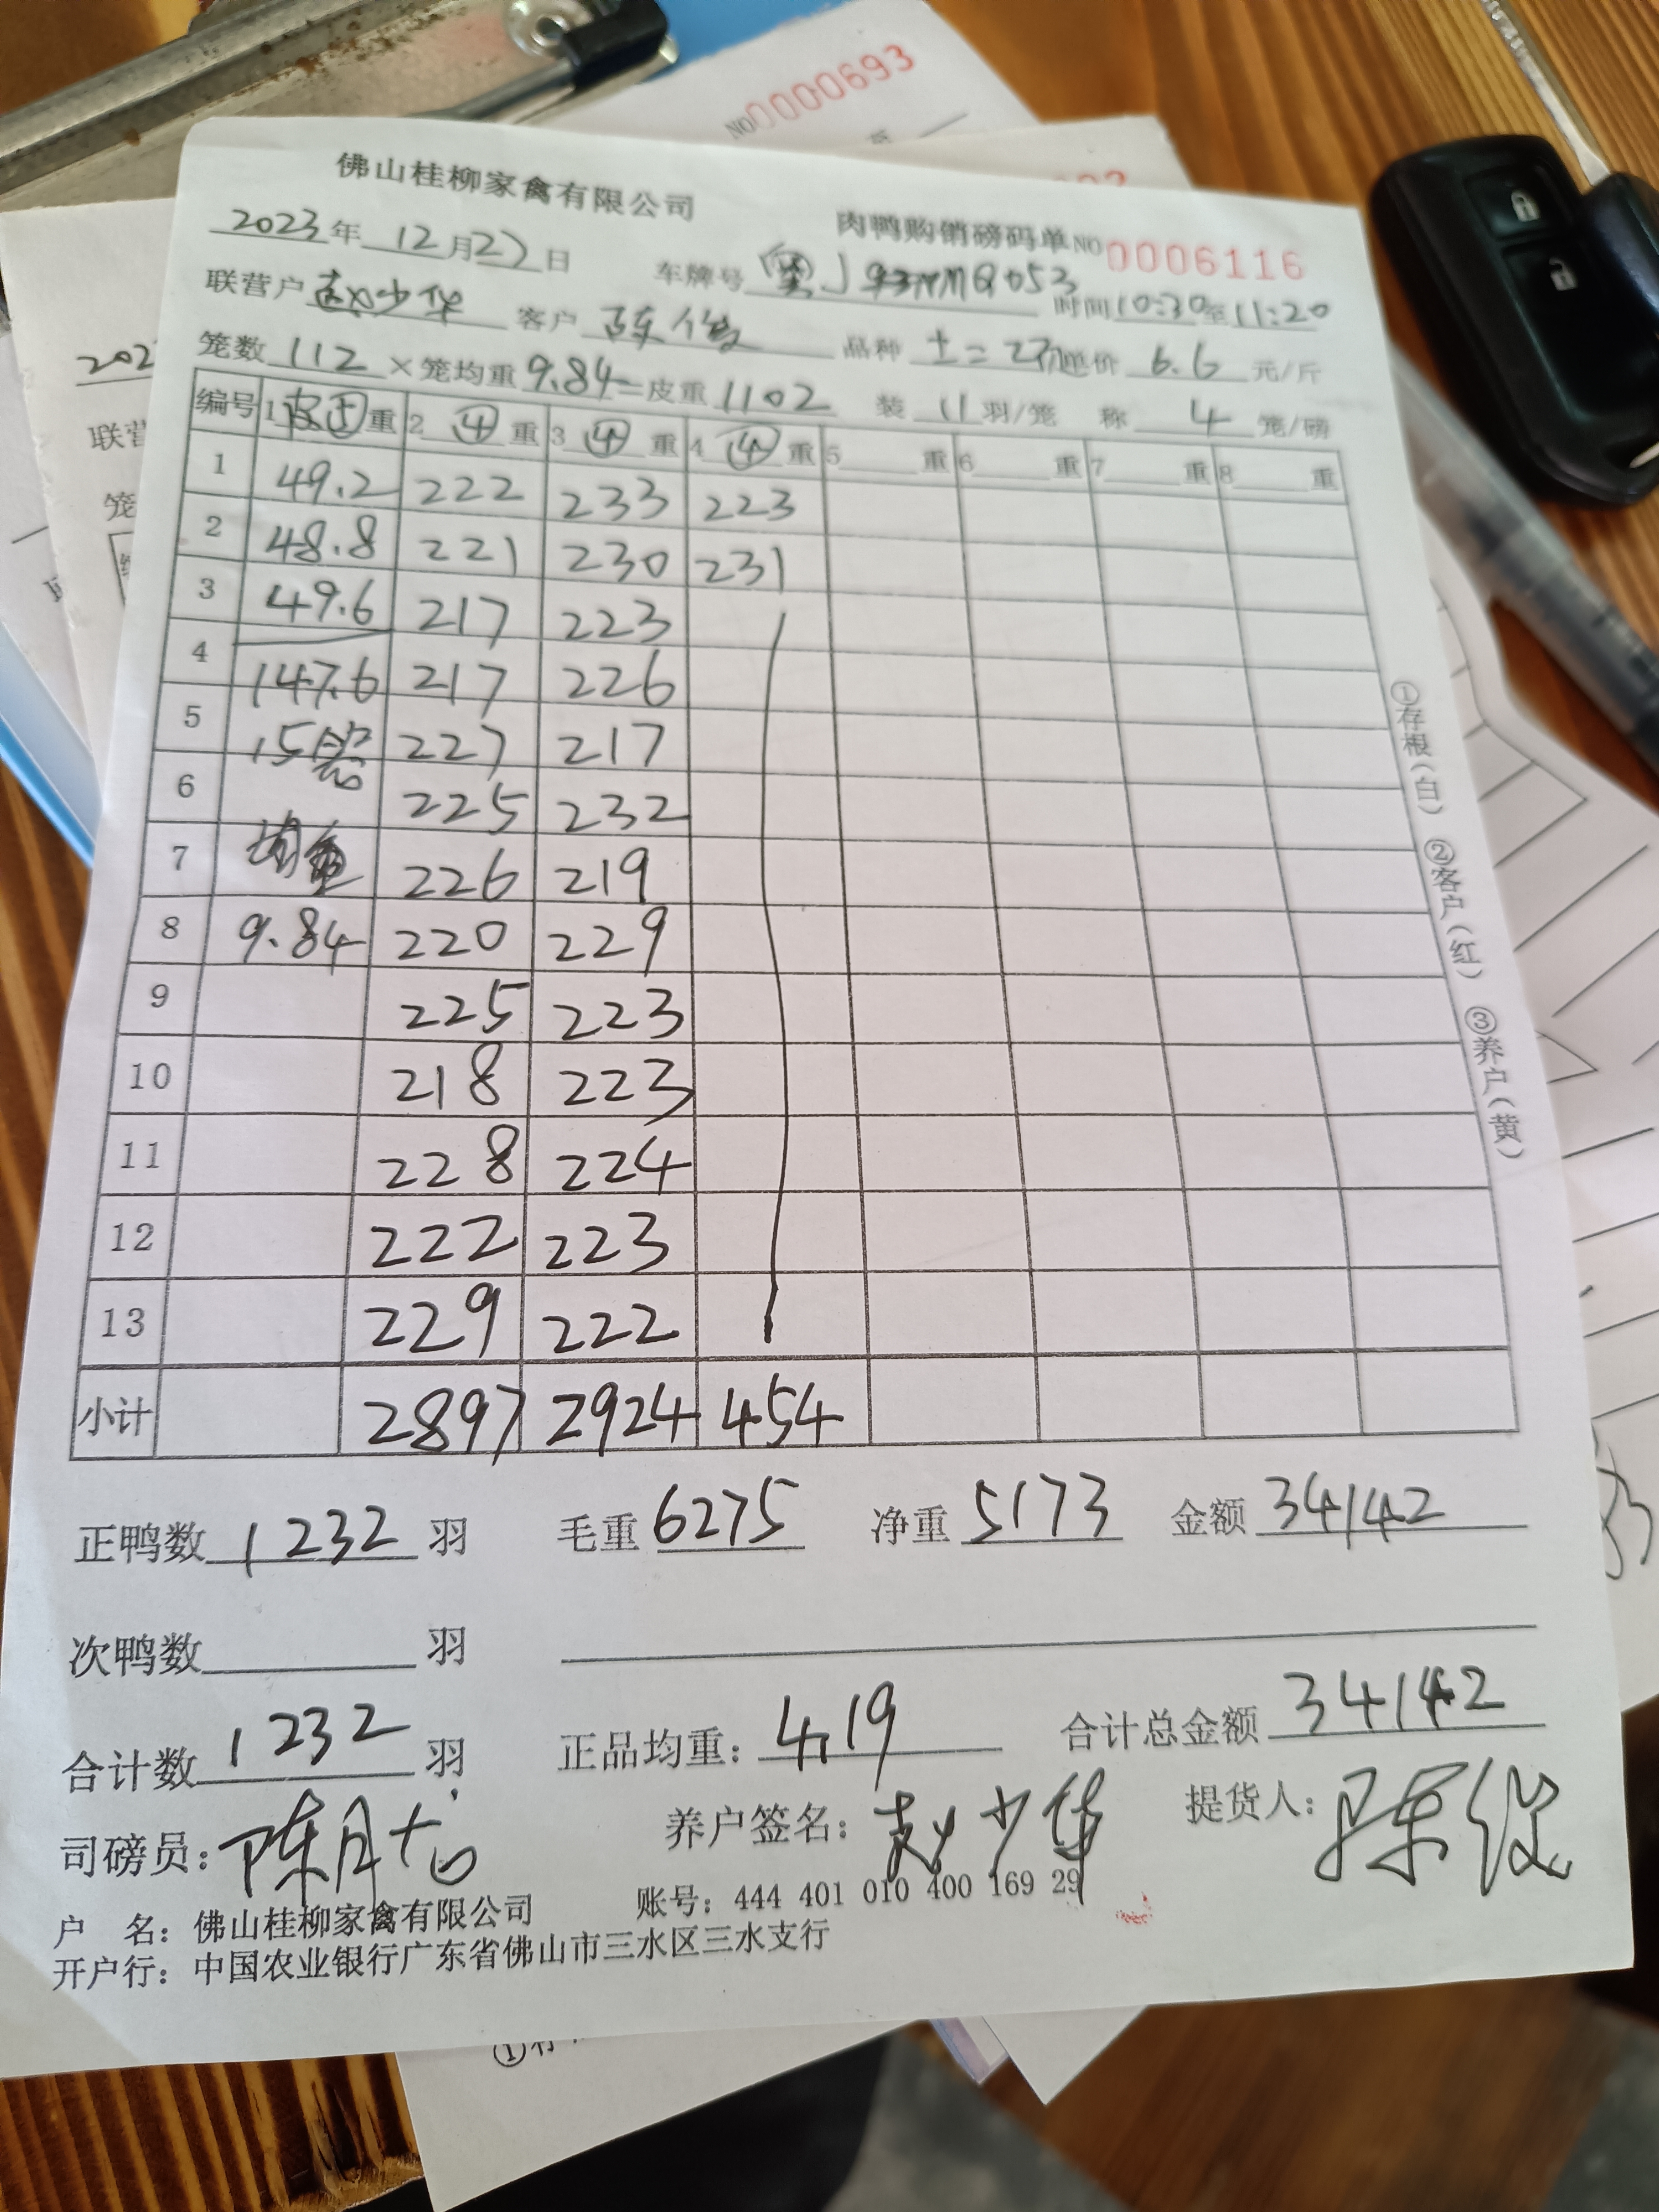 NO 0000693
佛山桂柳家禽有限公司 肉鸭购销磅码单 NO 0006116
2023年12月27日 车牌号 粤J Q053 时间10:30至11:20
联营户 赵少华 客户 陈俊 品种 土二 单价 6.6 元/斤
笼数 112 ×笼均重 9.84=皮重 1102 装 11 羽/笼 称 4 笼/磅
编号 1 皮⑤重 2 ④ 重 3 ④ 重 4 ④ 重 5 重 6 重 7 重 8 重
1 49.2 222 233 223
2 48.8 221 230 231
3 49.6 217 223
4 147.6 217 226
5 15笼 227 217
6 225 232
7 均重 226 219
8 9.84 220 229
9 225 223
10 218 223
11 228 224
12 222 223
13 229 222
小计 2897 2924 454
①存根(白) ②客户(红) ③养户(黄)
正鸭数 1232 羽 毛重 6275 净重 5173 金额 34142
次鸭数 羽
合计数 1232 羽 正品均重: 4.19 合计总金额 34142
司磅员: 养户签名: 赵少华 提货人: 陈俊
户 名: 佛山桂柳家禽有限公司 账号: 444 401 010 400 169 29
开户行: 中国农业银行广东省佛山市三水区三水支行